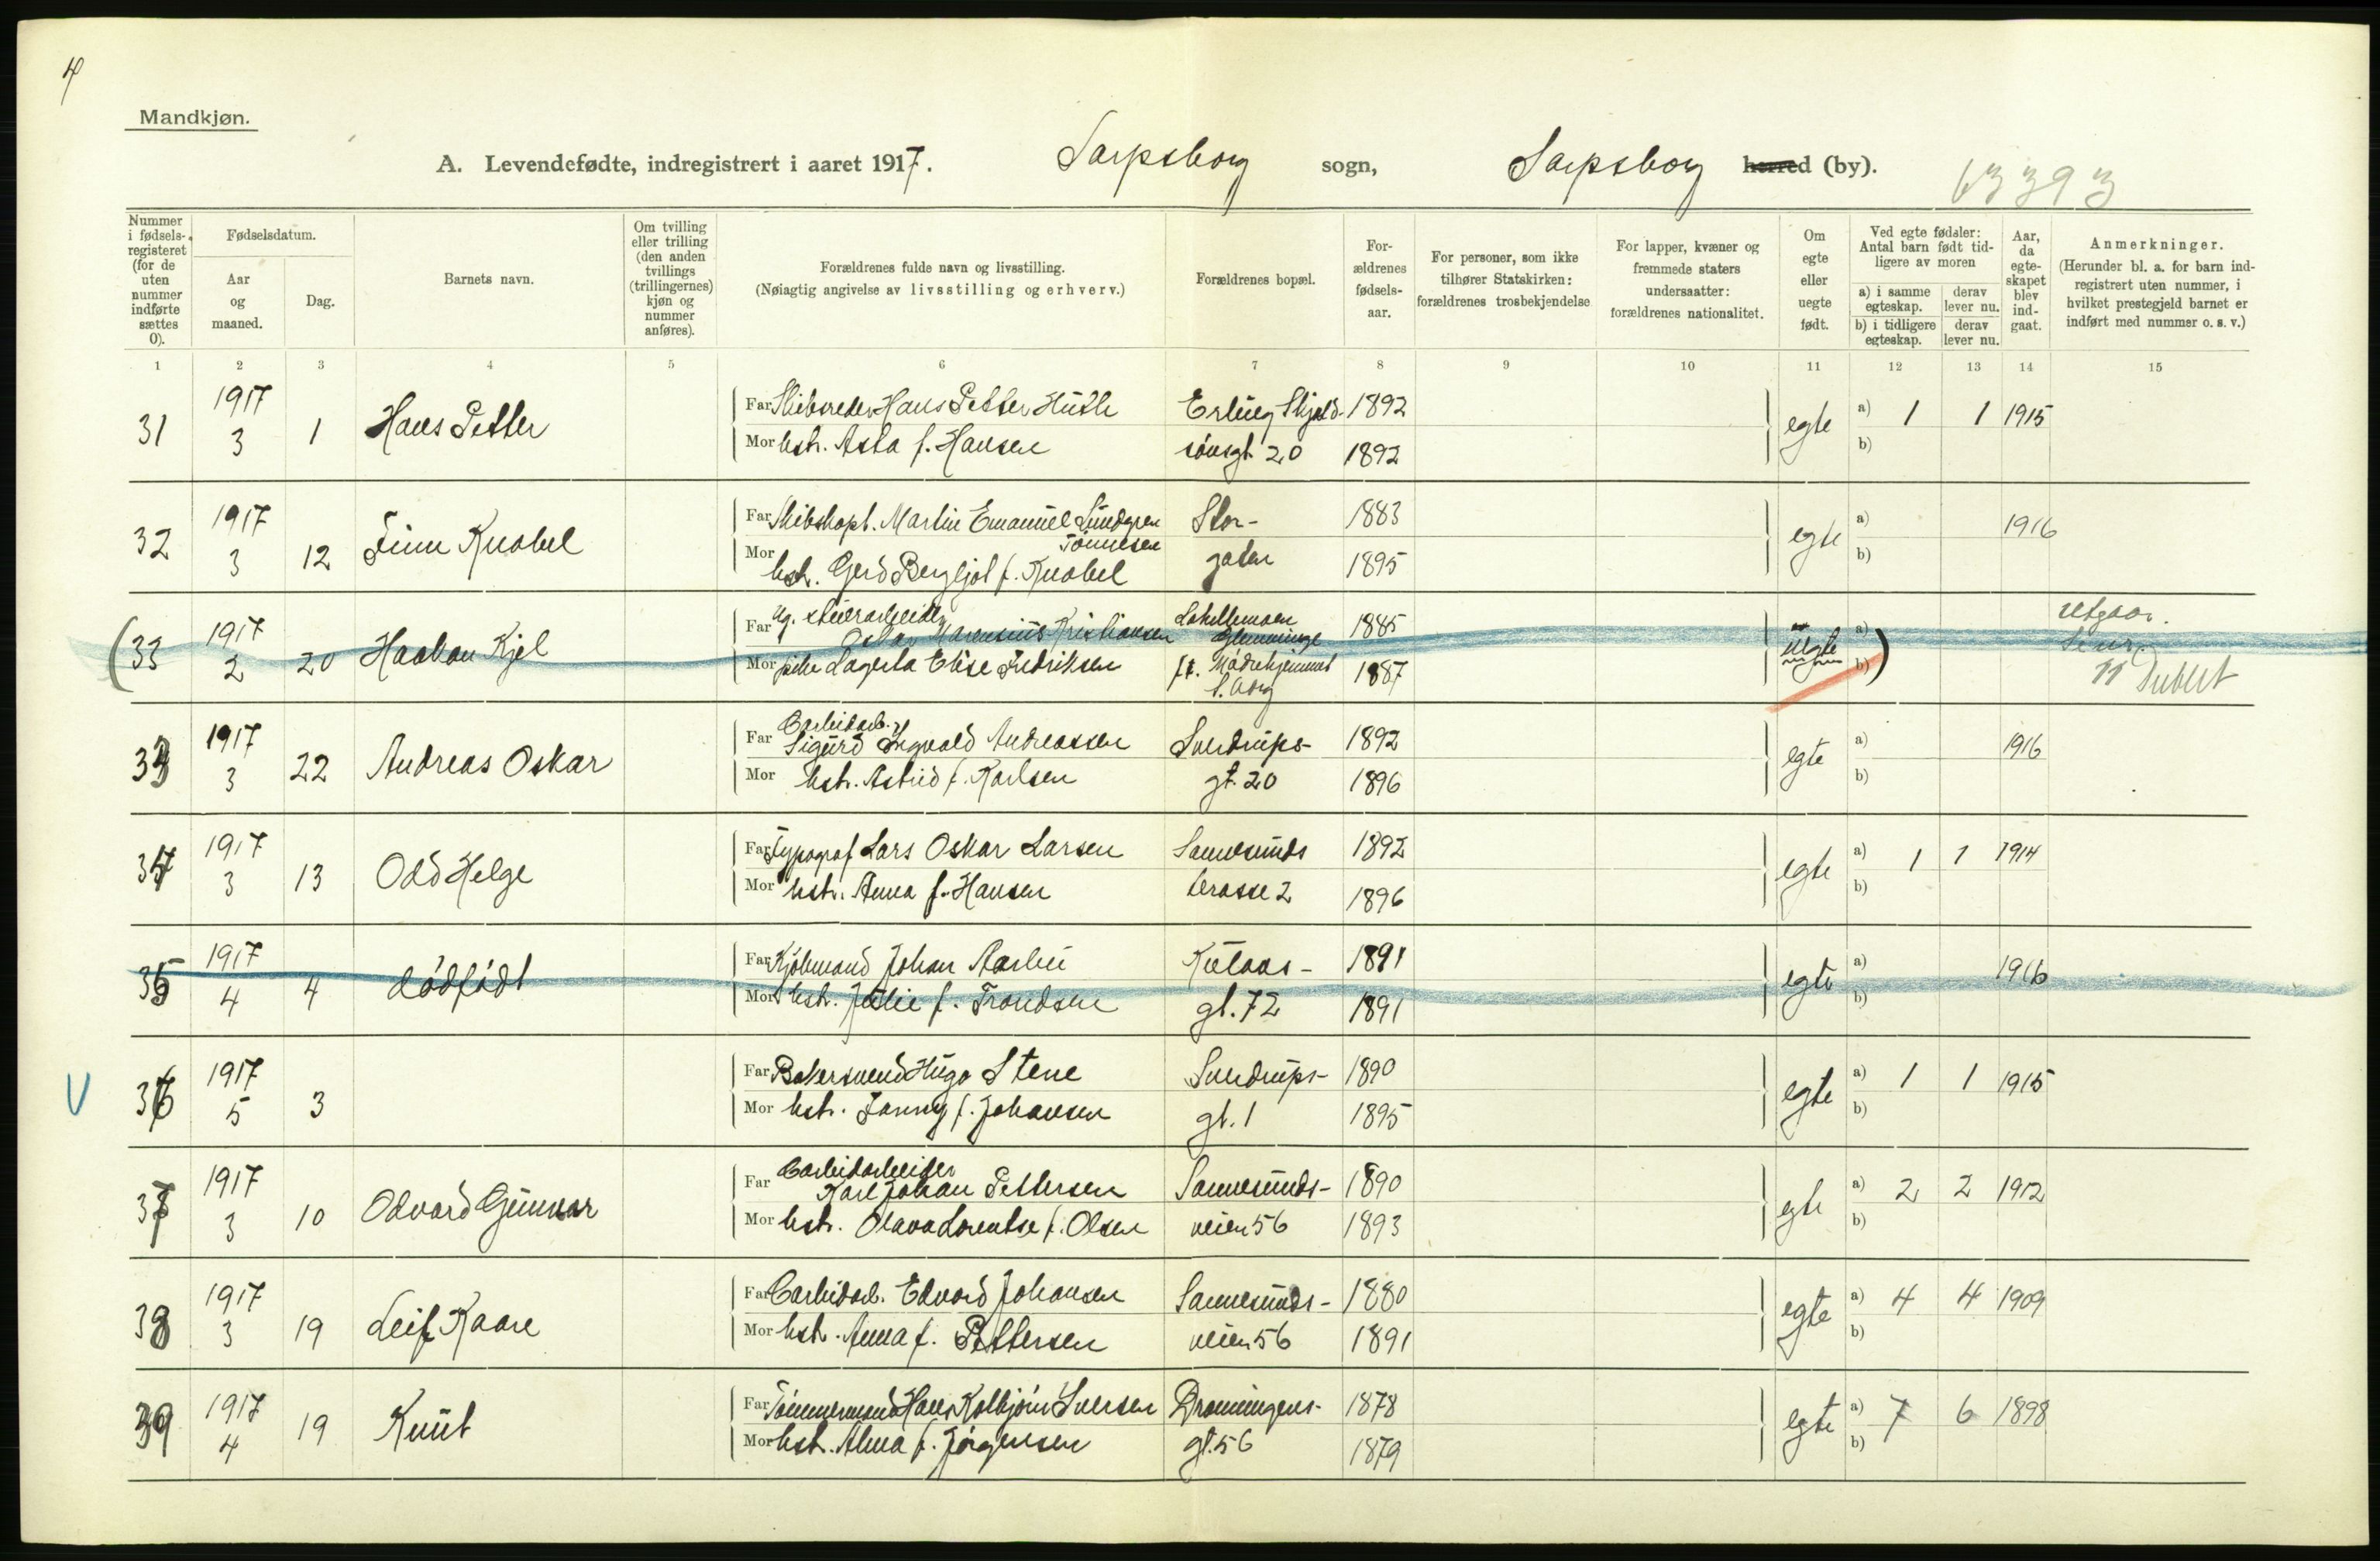 4
Mandkjøn.
A. Levendefødte, indregistrert i aaret 1917. Sarpsborg sogn, Sarpsborg herred (by).
Nummer i fødselsregisteret (for de uten nummer indførte sættes 0).
Fødselsdatum.
Aar og maaned.
Dag.
Barnets navn.
Om tvilling eller trilling (den anden tvillings (trillingernes) kjøn og nummer anføres).
Forældrenes fulde navn og livsstilling.
(Nøiagtig angivelse av livsstilling og erhverv.)
Forældrenes bopæl.
Forældrenes fødselsaar.
For personer, som ikke tilhører Statskirken: forældrenes trosbekjendelse
For lapper, kvæner og fremmede staters undersaatter: forældrenes nationalitet.
Om egte eller uegte født.
Ved egte fødsler: Antal barn født tidligere av moren
a) i samme egteskap.
derav lever nu.
b) i tidligere egteskap.
derav lever nu.
Aar, da egteskapet blev indgaat.
Anmerkninger.
(Herunder bl. a. for barn indregistrert uten nummer, i hvilket prestegjeld barnet er indført med nummer o. s. v.)
1 2 3 4 5 6 7 8 9 10 11 12 13 14 15
31 1917 3 1 Hans Petter
Far Skibsreder Hans Petter Huth Erling Skjold- 1892 egte a) 1 1 1915
Mor hstr. Asta f. Hansen sønsgt. 20 1892 b)
32 1917 3 12 Finn Knobel
Far Skibskapt. Martin Emanuel Lundgren Tønnesen Stor- 1883 egte a) 1916
Mor hstr. Gerd Bergljot f. Knobel gaten 1895 b)
33 1917 2 20 Haakon Kjel
Far Ug. Oskar Marensius Kristiansen Glemminge 1885 uegte a) utgaar.
Mor pike Lagerta Elise Fredriksen Mødrehjemmet S.borg 1887 b)
33 1917 3 22 Andreas Oskar
Far Carbidarb. Sigurd Ingvald Andreassen Sverdrups- 1892 egte a) 1916
Mor hstr. Astrid f. Karlsen gt. 20 1896 b)
34 1917 3 13 Odd Helge
Far Typograf Lars Oskar Larsen Sannesunds 1892 egte a) 1 1 1914
Mor hstr. Anna f. Hansen terasse 2 1896 b)
35 1917 4 4 dødfødt
Far Kjøbmand Johan Aarlie Kulaas- 1891 egte a) 1916
Mor hstr. Julie f. Trondsen gt. 72 1891 b)
V 36 1917 5 3
Far Bakersvend Hugo Stene Sverdrups- 1890 egte a) 1 1 1915
Mor hstr. Fanny f. Johansen gt. 1 1895 b)
37 1917 3 10 Odvard Gunnar
Far Carbidarbeider Karl Johan Pettersen Sannesunds- 1890 egte a) 2 2 1912
Mor hstr. Olava Lorentse f. Olsen veien 56 1893 b)
38 1917 3 19 Leif Kaare
Far Carbidarb. Edvard Johansen Sannesunds- 1880 egte a) 4 4 1909
Mor hstr. Anna f. Pettersen veien 56 1891 b)
39 1917 4 19 Knut
Far Tømmermand Hans Kolbjørn Iversen Dronningens- 1878 egte a) 7 6 1898
Mor hstr. Alma f. Jørgensen gt. 56 1879 b)